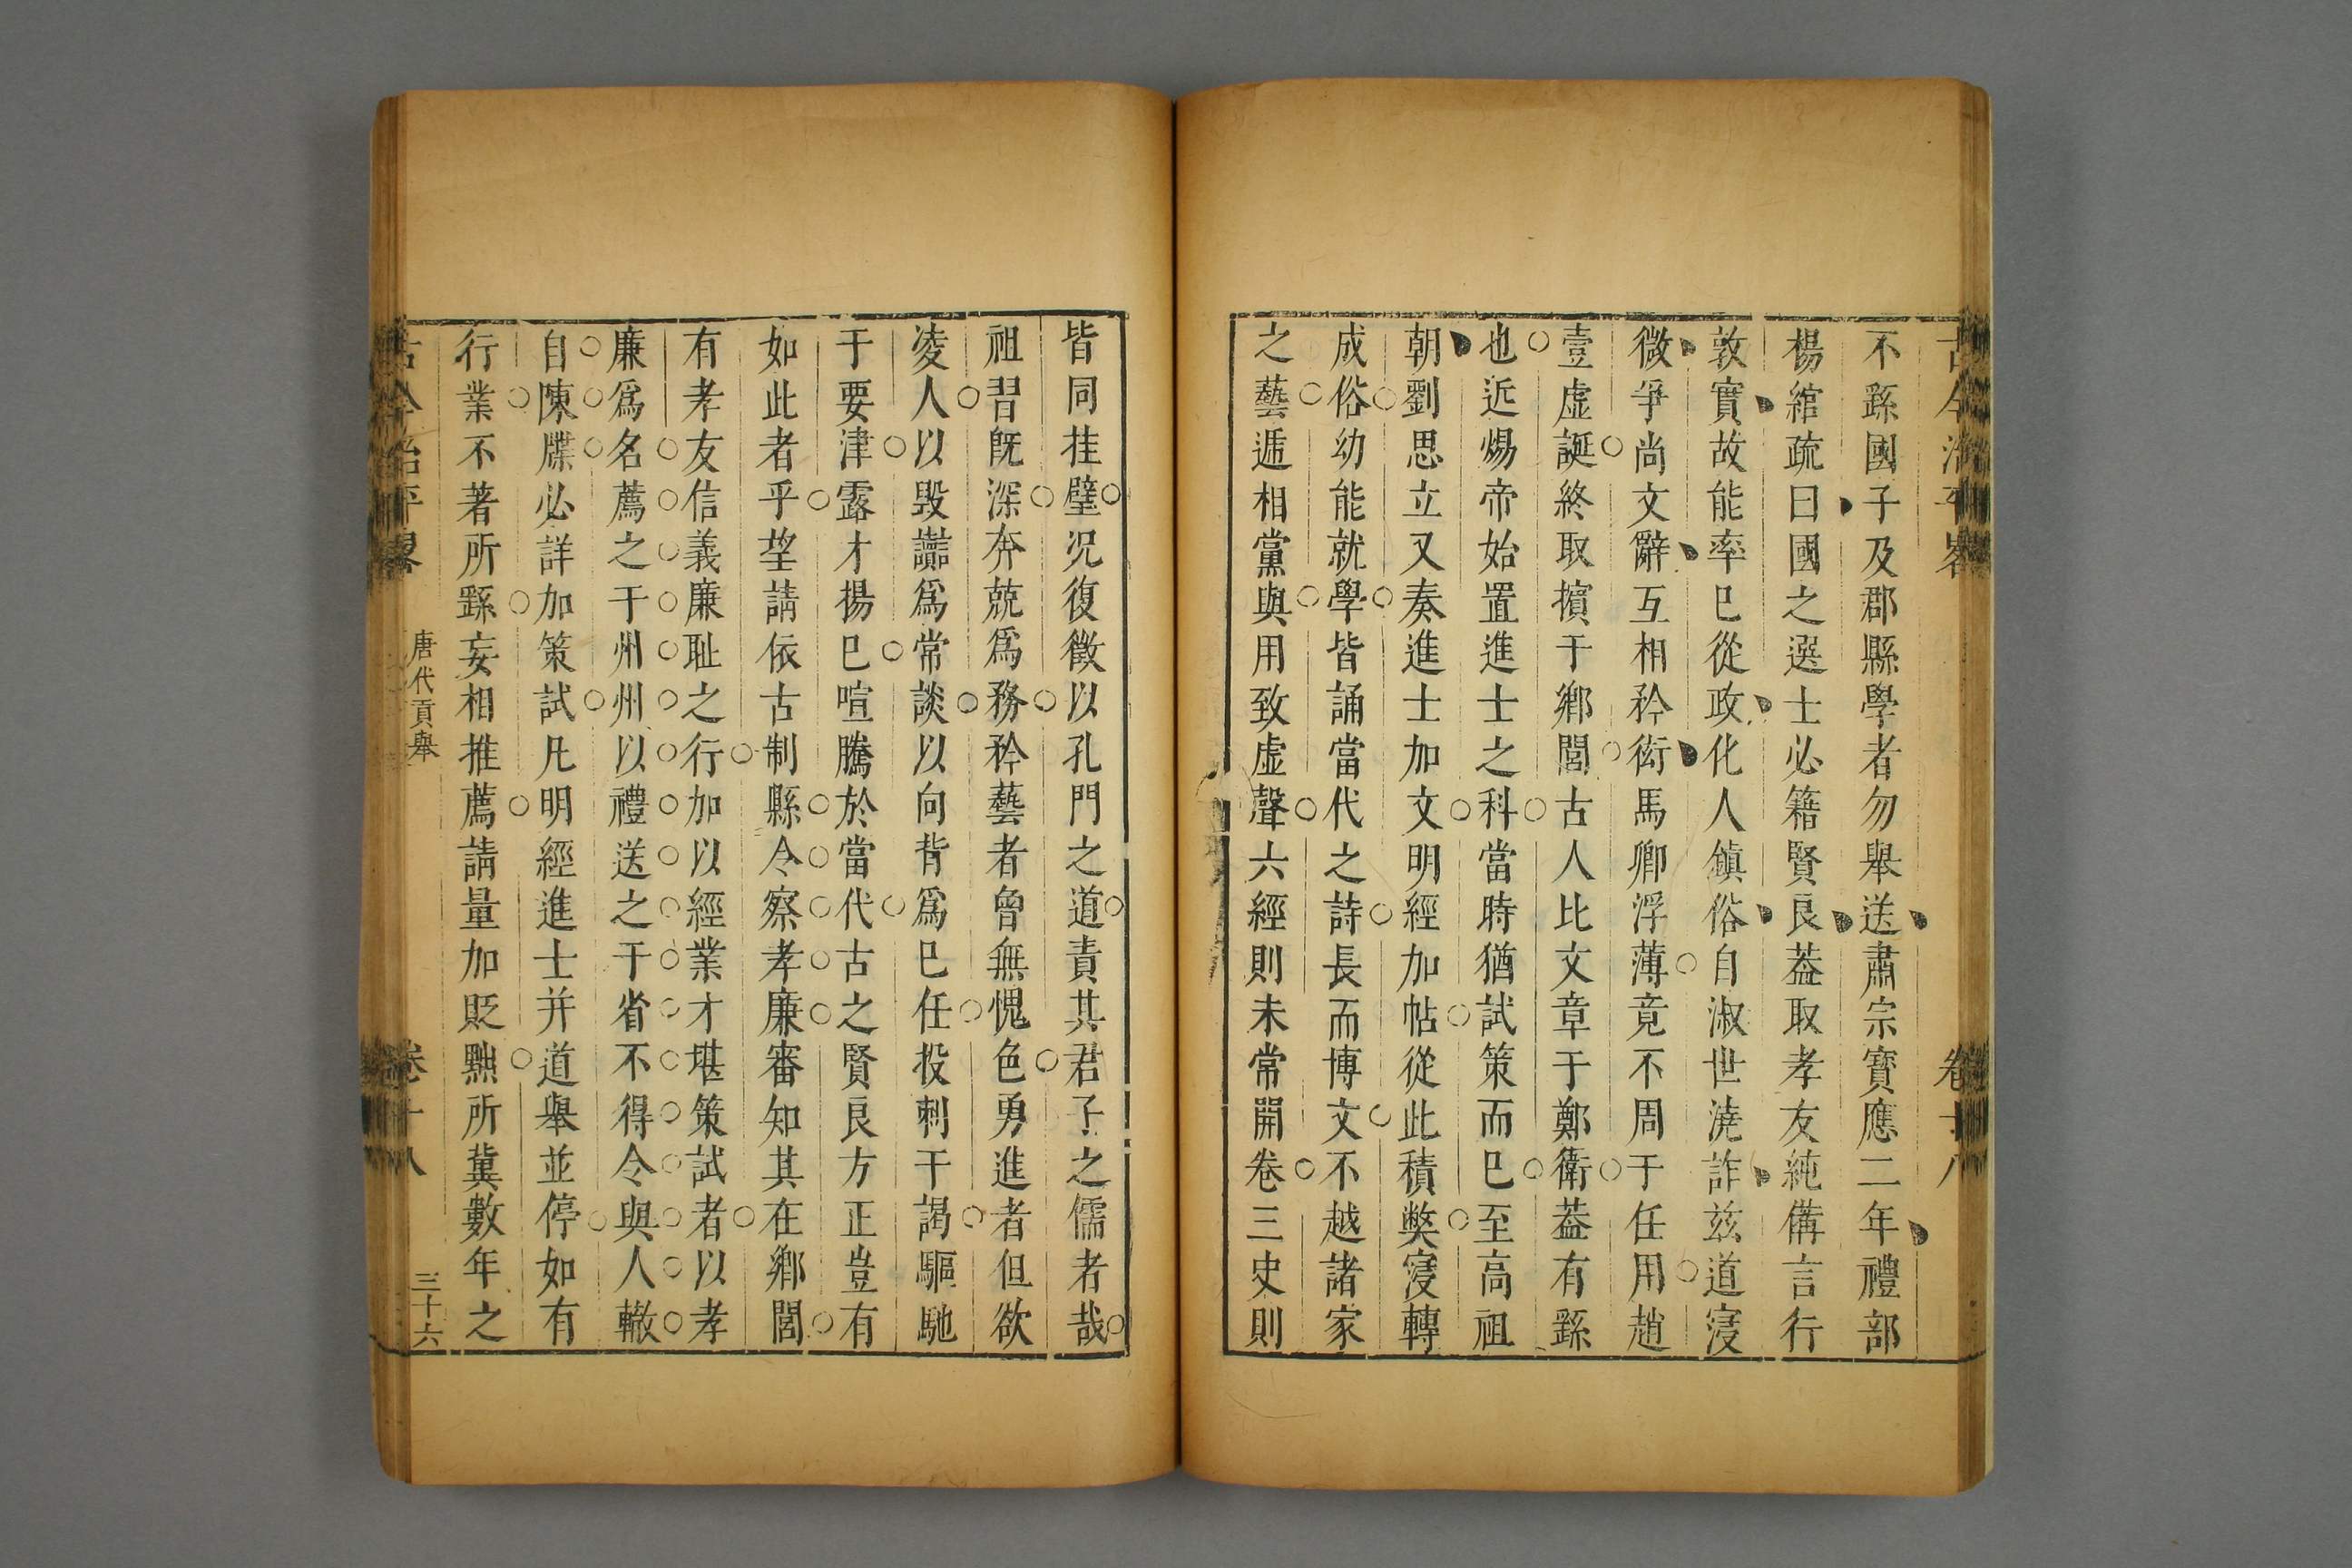 古今治平畧
卷十八
不繇國子及郡縣學者勿舉送肅宗寶應二年禮部
楊綰疏曰國之選士必籍賢良葢取孝友純備言行
敦實故能率已從政化人鎮俗自淑世澆詐兹道寖
微爭尚文辭互相矜衒馬卿浮薄竟不周于任用趙
壹虛誕終取擯于鄉閭古人比文章于鄭衛葢有繇
也近煬帝始置進士之科當時猶試策而已至高祖
朝劉思立又奏進士加文明經加帖從此積獘寖轉
成俗幼能就學皆誦當代之詩長而博文不越諸家
之藝遞相黨與用致虛聲六經則未常開卷三史則
皆同挂壁况復徵以孔門之道責其君子之儒者哉
祖習旣深奔兢爲務矜藝者曾無愧色勇進者但欲
凌人以毀讟爲常談以向背爲已任投刺干謁驅馳
于要津露才揚已喧騰於當代古之賢良方正豈有
如此者乎望請依古制縣令察孝廉審知其在鄉閭
有孝友信義廉耻之行加以經業才堪策試者以孝
廉爲名薦之于州州以禮送之于省不得令與人轍
自陳牒必詳加策試凡明經進士并道舉並停如有
行業不著所繇妄相推薦請量加貶黜所冀數年之
古今治平畧
唐代貢舉
卷十八
三十六